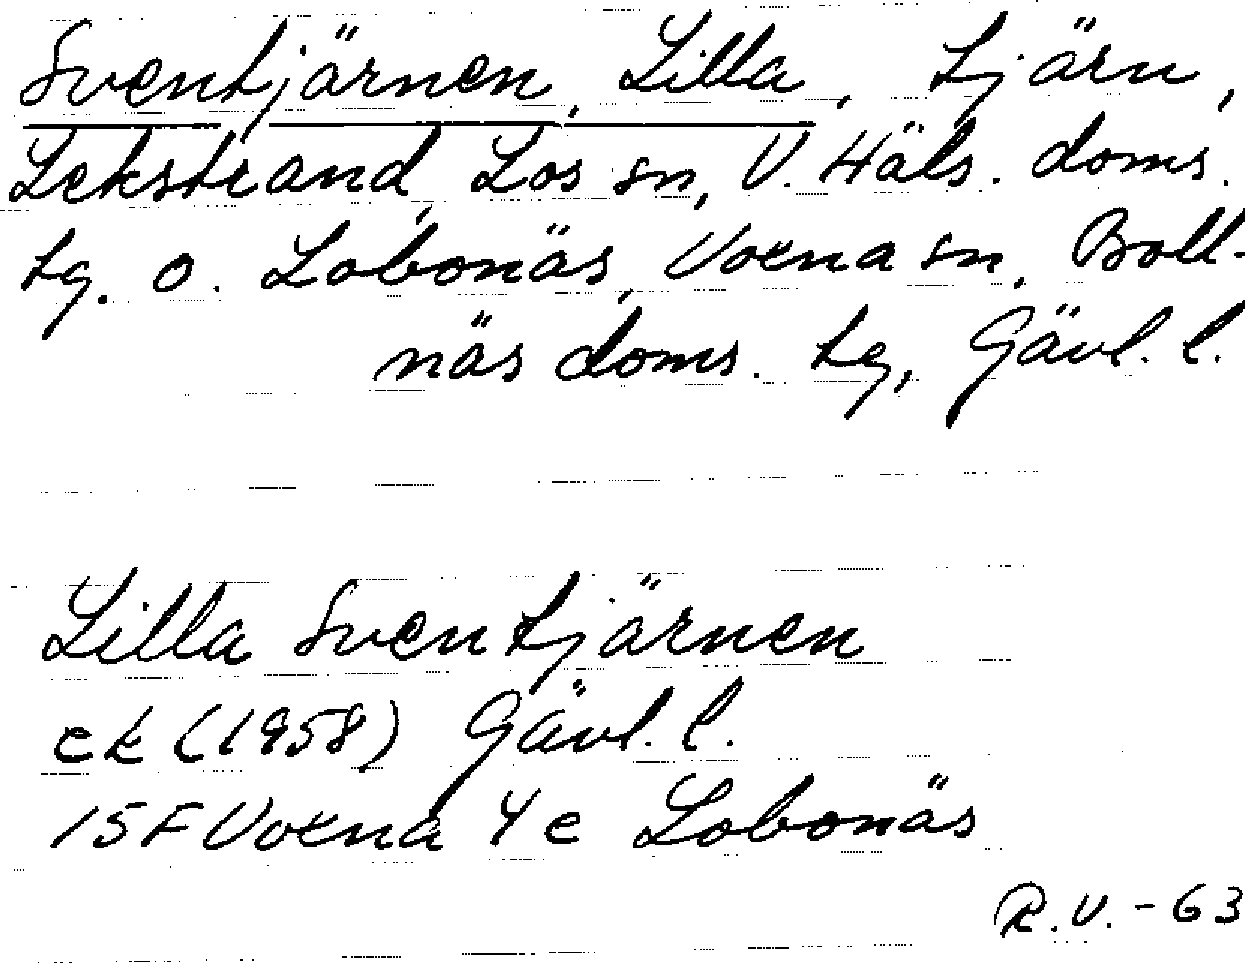 Sventjärnen, Lilla, tjärn,
Lekstrand, Los sn, V. Häls. doms.
tg. o. Lobonäs, Voxna sn, Boll-
näs doms. tg, Gävl. l.
Lilla Sventjärnen
ek (1958) Gävl. l.
15F Voxna 4e Lobonäs
R.V. - 63